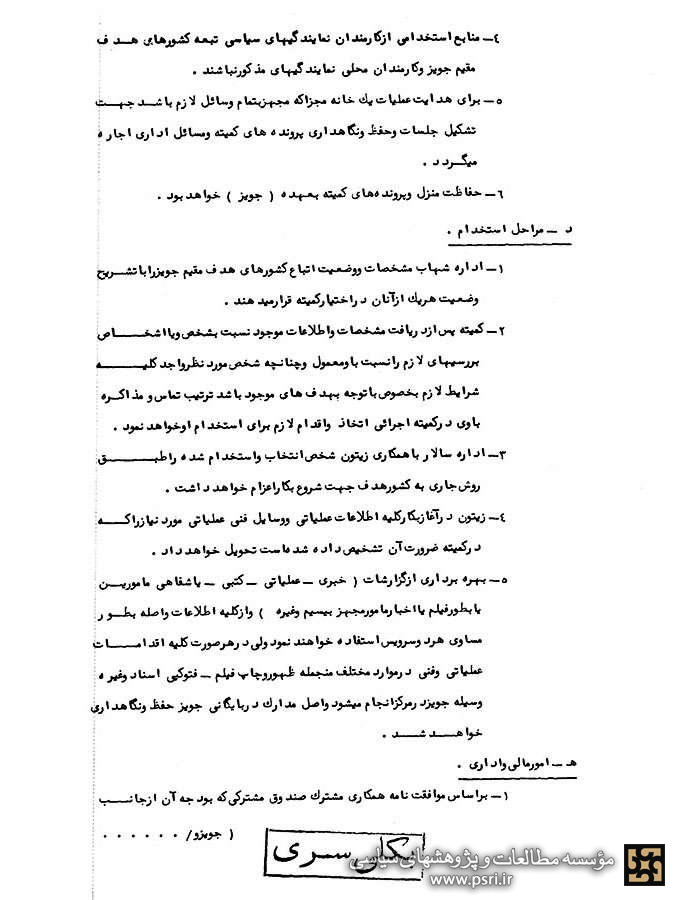 ٤ــ منابع استخدامی ازکارمندان نمایندگیهای سیاسی تبعه کشورهای هدف
مقیم جویز وکارمندان محلی نمایندگیهای مذکورنباشند .
٥ــ برای هدایت عملیات یك خانه مجزاکه مجهزبتمام وسائل لازم باشد جهت
تشکیل جلسات وحفظ ونگاهداری پرونده های کمیته ومسائل اداری اجاره
میگردد .
٦ــ حفاظت منزل وپرونده‌های کمیته بعهده ( جویز ) خواهد بود .
د ــ مراحل استخدام .
١ــ اداره شهاب مشخصات ووضعیت اتباع کشورهای هدف مقیم جویزراباتشریح
وضعیت هریك ازآنان دراختیارکمیته قرارمیدهند .
٢ــ کمیته پس ازدریافت مشخصات واطلاعات موجود نسبت بشخص ویااشخاص
بررسیهای لازم رانسبت باومعمول وچنانچه شخص مورد نظرواجد کلیه
شرایط لازم بخصوص باتوجه بهدف های موجود باشد ترتیب تماس و مذاکره
باوی درکمیته اجرائی اتخاذ واقدام لازم برای استخدام اوخواهد نمود .
٣ــ اداره سالار باهمکاری زیتون شخص انتخاب واستخدام شده راطبق
روش جاری به کشورهدف جهت شروع بکاراعزام خواهد داشت .
٤ــ زیتون درآغازبکارکلیه اطلاعات عملیاتی ووسایل فنی عملیاتی مورد نیازراکه
درکمیته ضرورت آن تشخیص داده شده‌است تحویل خواهد داد .
٥ــ بهره برداری ازگزارشات ( خبری ــ عملیاتی ــ کتبی ــ یاشفاهی مامورین
یابطورفیلم یااخبارمامورمجهز بیسیم وغیره ) وازکلیه اطلاعات واصله بطور
مساوی هرد وسرویس استفاده خواهند نمود ولی درهرصورت کلیه اقدامات
عملیاتی وفنی درموارد مختلف منجمله ظهوروچاپ فیلم ــ فتوکپی اسناد وغیره
وسیله جویزدرمرکزانجام میشود واصل مدارك دربایگانی جویز حفظ ونگاهداری
خواهد شد .
هـ ــ امورمالی واداری .
١ــ براساس موافقت نامه همکاری مشترك صندوق مشترکی که بودجه آن ازجانب
( جویزو/ ٠ ٠ ٠ ٠ ٠ ٠
بکلی سری
مؤسسه مطالعات و پژوهشهای سیاسی
www.psri.ir